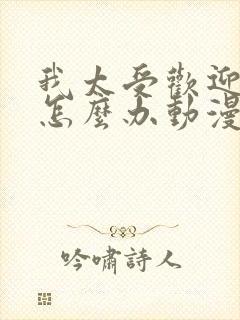 我太受歡迎
怎麼办動漫
吟嘯詩人